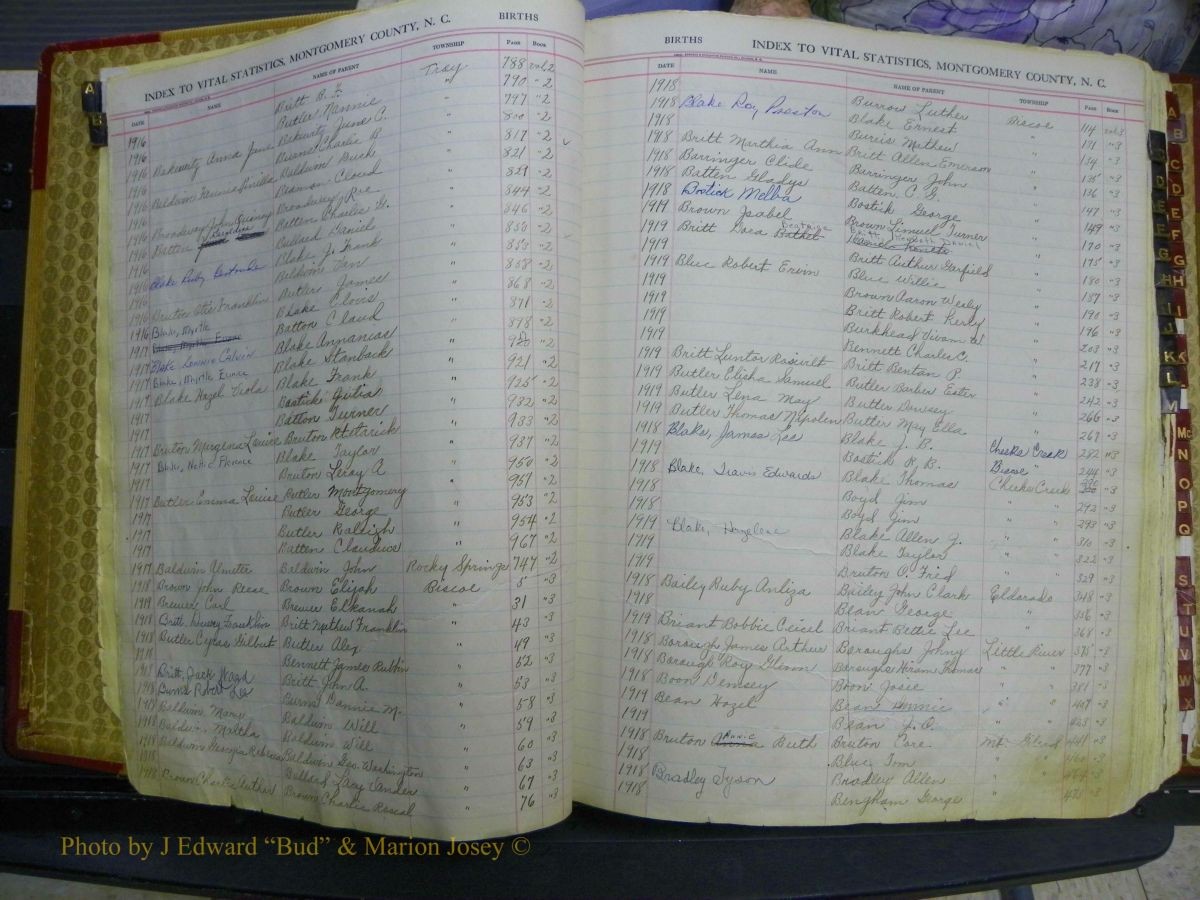 BIRTHS
INDEX TO VITAL STATISTICS, MONTGOMERY COUNTY, N. C.
DATE NAME NAME OF PARENT TOWNSHIP PAGE BOOK
Britt B. Troy 788 vol 2
Butler Nannie " 790 " 2
1916 797 " 2
1916 Bekewitz Anna June 800 " 2
1916 Charles B " 817 " 2
1916 Baldwin Baldwin Buck " 821 " 2
1916 " 821 " 2
1916 Broadway John Quincy Broadway Roe " 844 " 2
1916 Batten Geraldine Batten Charlie G. " 846 " 2
1916 Bullard Daniel " 850 " 2
1916 Blake Ruby Gertrude Blake J. Frank " 853 " 2
1916 Baldwin Van " 858 " 2
1916 Bruton Otis Franklin Butler James " 868 " 2
1916 Blake, Myrtle Blake Clovis " 871 " 2
1917 Blake, Myrtle Eunice Batton Claud " 878 " 2
1917 Blake Lonnie Calvin Blake Annanias " 920 " 2
1917 Blake, Myrtle Eunice Blake Stanback " 921 " 2
1917 Blake Hazel Viola Blake Frank " 925 " 2
1917 Bostick Julia " 932 " 2
1917 Batton Turner " 933 " 2
1917 Bruton Margenia Louise Bruton " 937 " 2
1917 Blake, Nettie Florence Blake Taylor " 950 " 2
1917 Bruton Leroy A " 951 " 2
1917 Butler Emma Louise Butler Montgomery " 953 " 2
1917 Butler George " 954 " 2
1917 Butler Raleigh " 967 " 2
1917 Batten Claudius "
1917 Baldwin Almeter Baldwin John Rocky Springs 747 " 2
1918 Brown John Reese Brown Elijah Biscoe 5 " 3
1919 Brewer Carl Brewer Elkanah " 31 " 3
1918 Britt Dewey Franklin Britt Mathew Franklin " 43 " 3
1918 Butler Cyrus Gilbert Butler Alex " 49 " 3
1918 Bennett James Rubin " 52 " 3
1918 Britt, Jack Britt John A. " 53 " 3
1918 Burns Robert Lee Burns Dannie M. " 58 " 3
1918 Baldwin Mary Baldwin Will " 59 " 3
1918 Baldwin Martha Baldwin Will " 60 " 3
1918 Baldwin Georgia Rebecca Baldwin Geo. Washington " 63 " 3
1918 Bullard Lacy Sander " 67 " 3
1918 Brown Charlie Arthur Brown Charlie Roscal " 76 " 3
BIRTHS
INDEX TO VITAL STATISTICS, MONTGOMERY COUNTY, N. C.
DATE NAME NAME OF PARENT TOWNSHIP PAGE BOOK
1918 Burrow Luther Biscoe 114 vol 3
1918 Blake Roy Preston Blake Ernest " 131 " 3
1918 Burris Mathew " 134 " 3
1918 Britt Mirthia Ann Britt Allen Emerson " 135 " 3
1918 Barringer Clide Barringer John " 136 " 3
1918 Batten Gladys Batten C. G. " 147 " 3
1918 Bostick Melba Bostick George " 149 " 3
1919 Brown Isabel Brown Limuel Turner " 170 " 3
1919 Britt Dora Beatrice Daniel " 175 " 3
1919 Britt Arthur Garfield " 180 " 3
1919 Blue Robert Ervin Blue Willie " 187 " 3
1919 Brown Aaron Wesly " 190 " 3
1919 Britt Robert Kerly " 196 " 3
1919 Burkhead Vivam W. " 203 " 3
1919 Bennett Charles C. " 217 " 3
1919 Britt Luntor Rosivelt Britt Bentan P. " 238 " 3
1919 Butler Elisha Samuel Butler Burbes Ester " 242 " 3
1919 Butler Lena May Butler Dowsey " 266 " 3
1919 Butler Thomas Nipolen Butler May Ella " 267 " 3
1918 Blake, James Lee Blake J. B. Cheeks Creek 282 " 3
1919 Bostick R. B. Biscoe " 244 " 3
1918 Blake, Travis Edwards Blake Thomas Cheeks Creek " 3
1918 Boyd Jim " " 292 " 3
1918 Boyd Jim " " 293 " 3
1919 Blake, Hazelene Blake Allen J. " " 310 " 3
1919 Blake Taylor " " 322 " 3
1919 Bruton P. Fred " " 329 " 3
1918 Bailey Ruby Anliza Bailey John Clark Eldorado 348 " 3
1918 Bean George " 356 " 3
1919 Briant Bobbie Cicil Briant Bettie Lee " 368 " 3
1918 Borough James Arthur Boroughs Johny Little River 375 " 3
1918 Borough Roy Glenn Boroughs Hiram Thomas " 377 " 3
1918 Boon Demsey Boon Josie " 381 " 3
1919 Bean Hazel Bean " 407 " 3
1919 Bean J. O. " 423 " 3
1918 Bruton Annie Beth Bruton Core. Mt. Gilead 441 " 3
1918 Blue Tom " 460 " 3
1918 Bradley Tyson Bradley Allen " 464 " 3
1918 Bengham George " 475 " 3
A
B
A
B
C
D
E
F
G
H
I
J
K
L
M
Mc
N
O
P
Q
R
S
T
U
V
W
X
Photo by J Edward “Bud” & Marion Josey ©